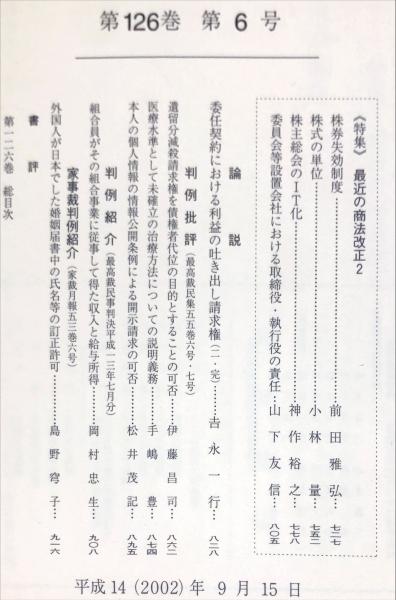 第126巻 第6号
《特集》 最近の商法改正2
株券失効制度………前田雅弘…七二七
株式の単位………小林量…七五二
株主総会のIT化………神作裕之…七七八
委員会等設置会社における取締役・執行役の責任…山下友信…八〇五
論説
委任契約における利益の吐き出し請求権(二・完)………吉永一行…八二八
判例批評(最高裁民集五五巻六号・七号)
遺留分減殺請求権を債権者代位の目的とすることの可否………伊藤昌司…八六二
医療水準として未確立の治療方法についての説明義務………手嶋豊…八七四
本人の個人情報の情報公開条例による開示請求の可否………松井茂記…八九五
判例紹介(最高裁民事判決平成一三年七月分)
組合員がその組合事業に従事して得た収入と給与所得………岡村忠生…九〇八
家事裁判例紹介(家裁月報五三巻六号)
外国人が日本でした婚姻届書中の氏名等の訂正許可………島野穹子…九一六
書評
第一二六巻 総目次
平成14(2002)年 9月15日